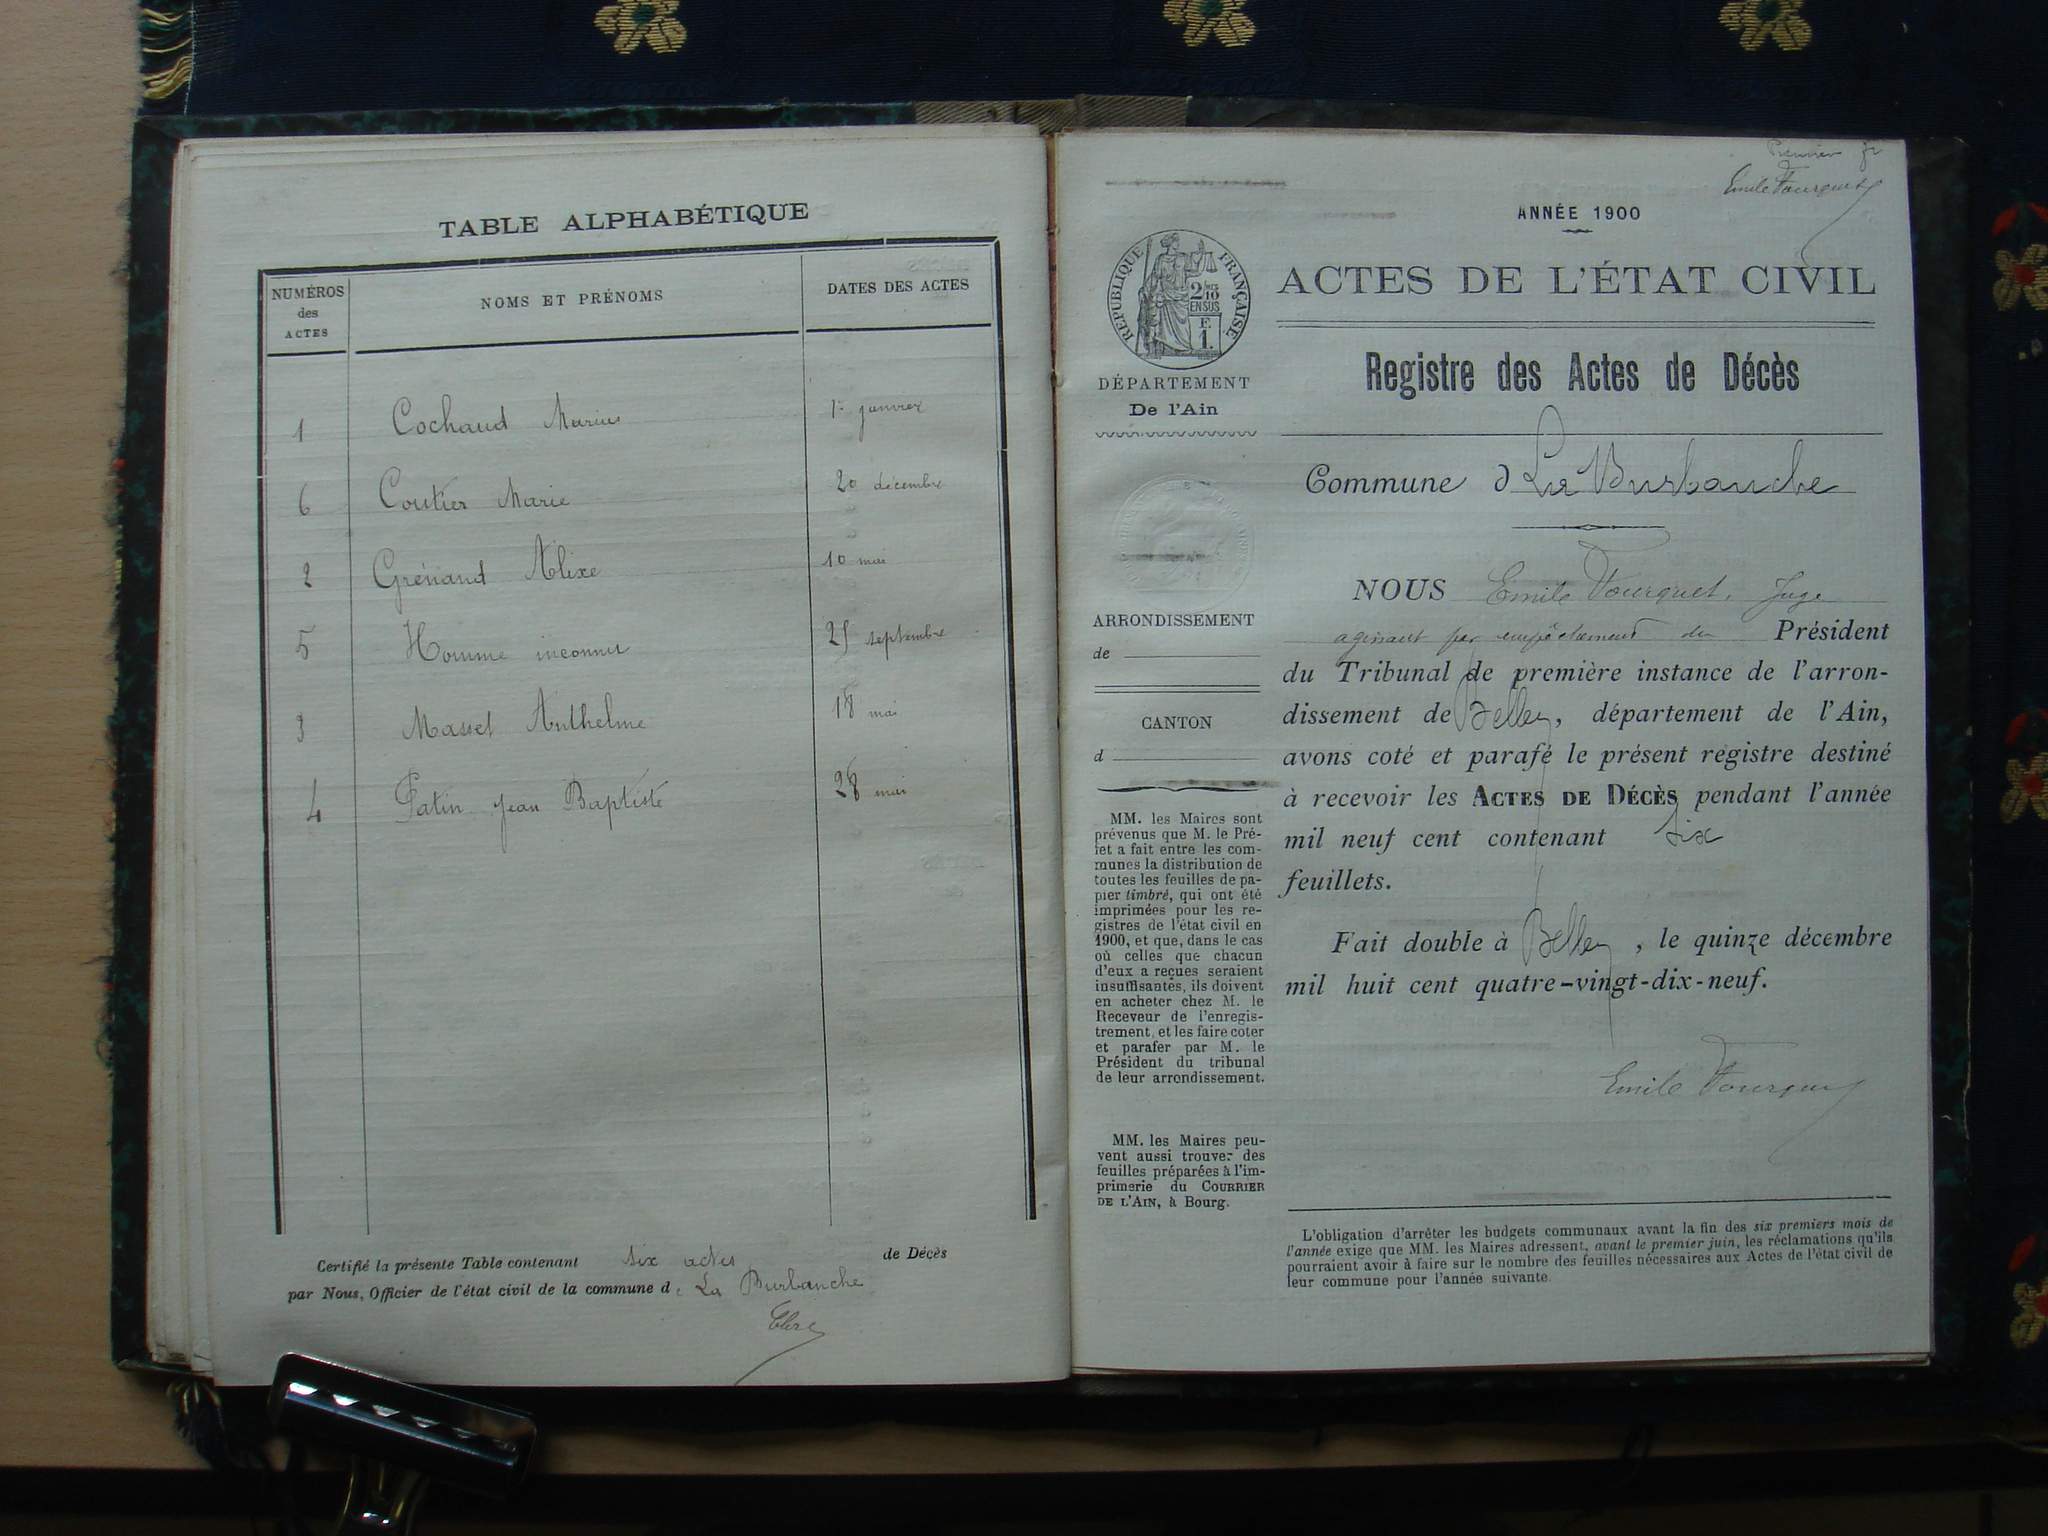 TABLE ALPHABÉTIQUE
NUMÉROS
des
ACTES
NOMS ET PRÉNOMS
DATES DES ACTES
1 Cochaud Marius 1er janvier
6 Coutier Marie 20 décembre
2 Grénaud Alixe 10 mai
5 Homme inconnu 25 septembre
3 Masset Anthelme 18 mai
4 Patin Jean Baptiste 28 mai
Certifié la présente Table contenant six actes de Décès
par Nous, Officier de l'état civil de la commune de La Burbanche
Premier
Emile Fourquet
ANNÉE 1900
RÉPUBLIQUE FRANÇAISE
2/10
EN SUS
F.
1.
ACTES DE L'ÉTAT CIVIL
Registre des Actes de Décès
DÉPARTEMENT
De l'Ain
Commune d La Burbanche
NOUS Emile Fourquet, Juge
agissant par empêchement du Président
du Tribunal de première instance de l'arron-
dissement de Belley, département de l'Ain,
avons coté et parafé le présent registre destiné
à recevoir les ACTES DE DÉCÈS pendant l'année
mil neuf cent contenant six
feuillets.
Fait double à Belley, le quinze décembre
mil huit cent quatre-vingt-dix-neuf.
Emile Fourquet
ARRONDISSEMENT
de
CANTON
d
MM. les Maires sont
prévenus que M. le Pré-
fet a fait entre les com-
munes la distribution de
toutes les feuilles de pa-
pier timbré, qui ont été
imprimées pour les re-
gistres de l'état civil en
1900, et que, dans le cas
où celles que chacun
d'eux a reçues seraient
insuffisantes, ils doivent
en acheter chez M. le
Receveur de l'enregis-
trement, et les faire coter
et parafer par M. le
Président du tribunal
de leur arrondissement.
MM. les Maires peu-
vent aussi trouver des
feuilles préparées à l'im-
primerie du COURRIER
DE L'AIN, à Bourg.
L'obligation d'arrêter les budgets communaux avant la fin des six premiers mois de
l'année exige que MM. les Maires adressent, avant le premier juin, les réclamations qu'ils
pourraient avoir à faire sur le nombre des feuilles nécessaires aux Actes de l'état civil de
leur commune pour l'année suivante.